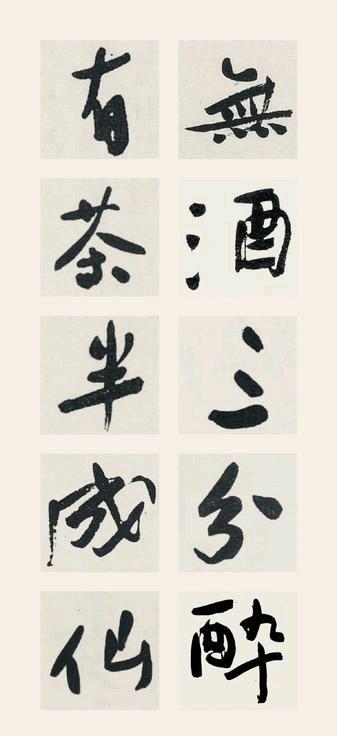 無酒三分醉
有茶半成仙